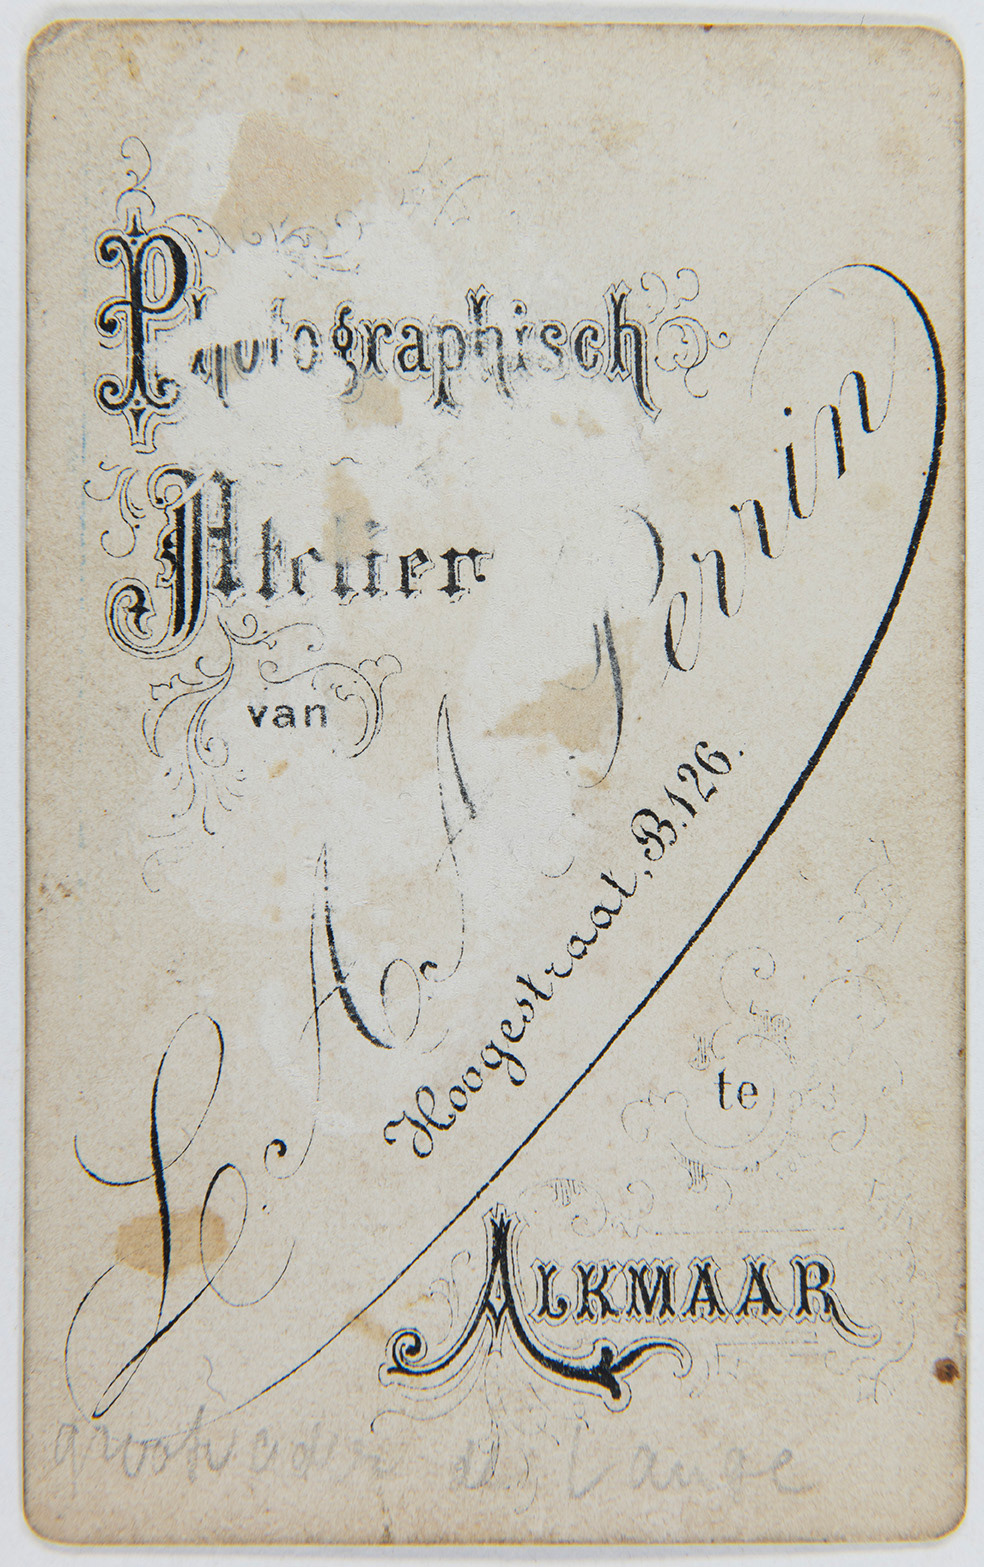 Photographisch
Atelier
van
L A A Perrin
Hoogestraat, B.126.
te
ALKMAAR
grootvader de Lange